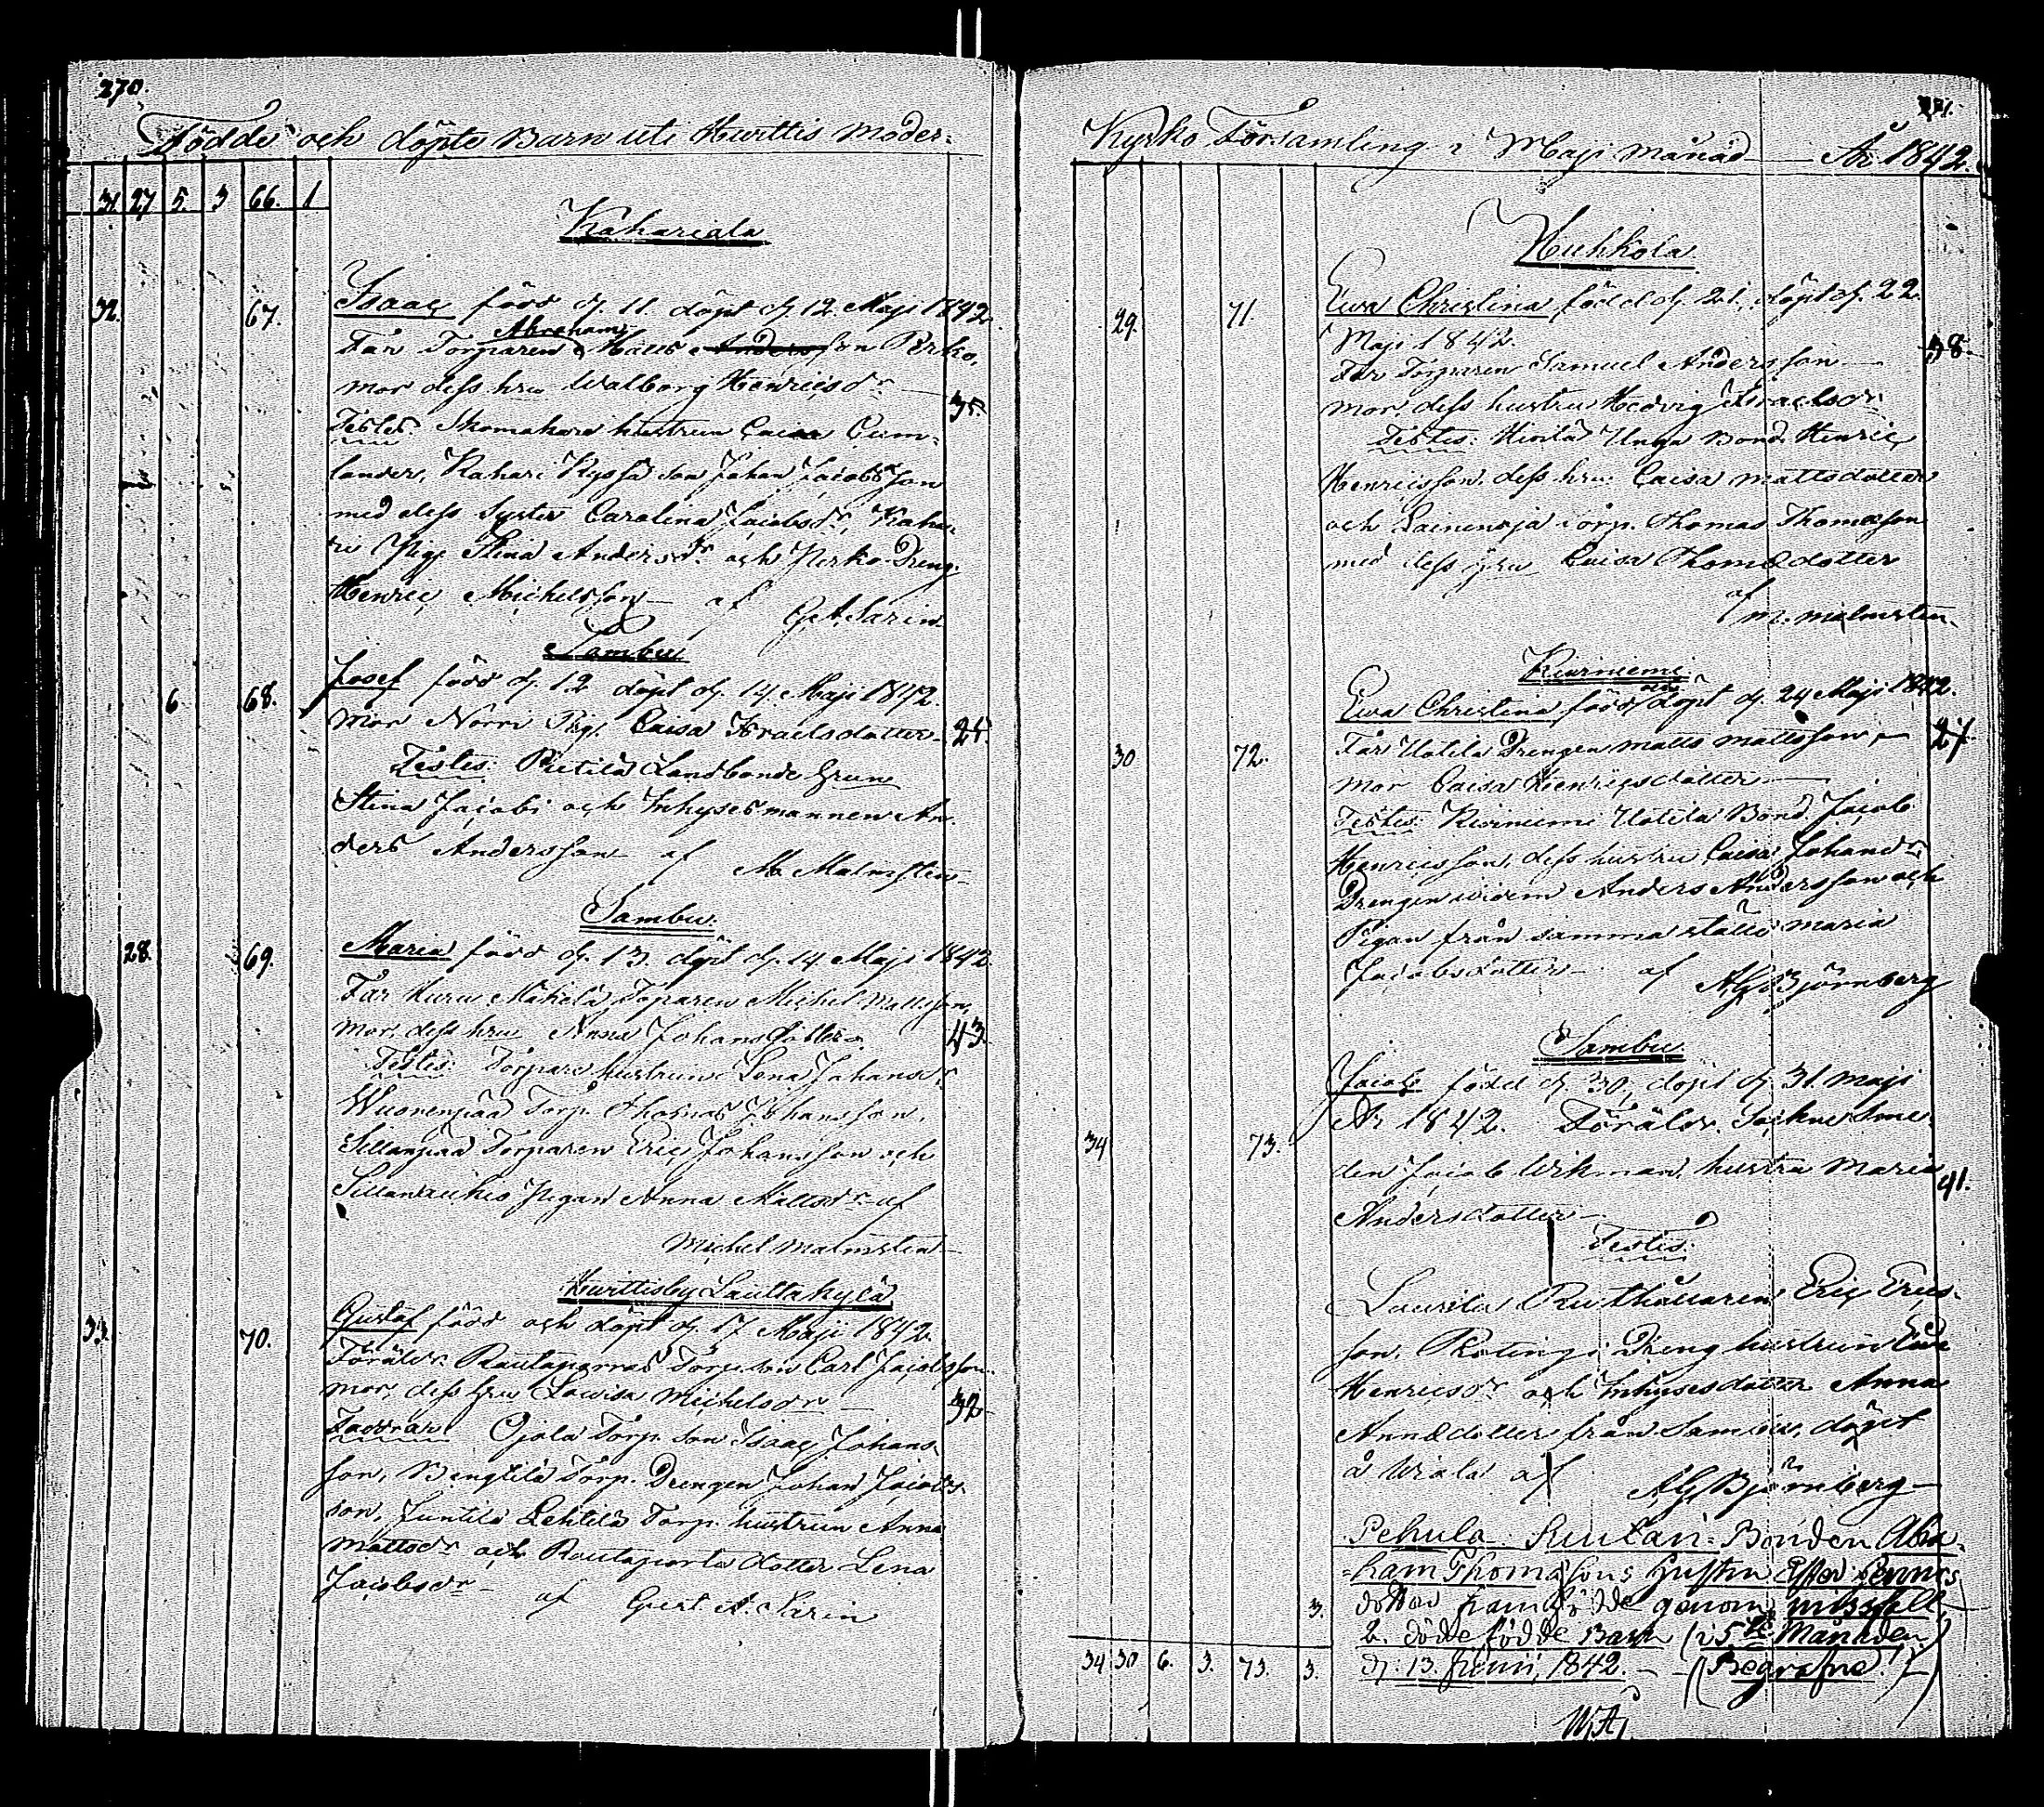 270.
Födde och döpte Barn uti Hvittis Moder-
31. 27 5. 3 66. 1
Kahariala
32. 67. Isaac född d. 11. döpt d. 12. Maji 1842.
Abrahams
Far Torparen Matts Anders son Perko,
mor dess hru Walborg Henricsdr 35.
Testes. hustrun Caisa Cum-
lander, Kahari Kyssä son Johan Jacobsson
med dess Syster Carolina Jacobsdr, Kaha-
ri Pig. Stina Andersdr och Perko Dreng
Henric Michelsson af G. A. Sarin
Sambu
6 68. Josef född d. 12 döpt d. 14. Maji 1842.
Mor Norri Pig. Caisa Israelsdotter 25
Testes: Pietilä Landbonde hrun
Stina Jacobi och Inhysesmannen An-
ders Andersson af M Malmsten
Sambu.
28. 69. Maria född d. 13. döpt d. 14 Maji 1842.
Far Huru Mikola Torparen Michel Mattsson,
mor, dess hru Anna Johansdotter. 43.
Testes: Torpare hustrun Lena Johansdr
Wuorenpää Torp. Thomas Johansson,
Sillanpää Torparen Eric Johansson och
Pigan Anna Mattsdr af
Michel Malmsten
Hvittisby Lauttakylä
33. 70. Gustaf född och döpt d. 17 Maji 1842.
Föräldr. Torp. son Carl Jacobsson
mor, dess hru Lovisa Michelsdr 32
Faddrar Ojala Torp. son Isaac Johans-
son, Bengtilä Torp. Drengen Johan Jacobs-
son, Juntila Lehtilä Torp. hustrun Anna
Mattsdr och Rautaporta dotter Lena
Jacobsdr af Gust. A. Sarin
271.
Kyrko Församling i Maji Månad År 1842.
Huhkola
29. 71. Ewa Christina född d. 21. döpt d. 22.
Maji 1842. 38.
Far Torparen Samuel Andersson
mor, dess hustru Hedvig Israelsdr
Testes: Unga Bond. Henric
Henricsson, dess hru Caisa Mattsdotter
och Torp. Thomas Thomasson
med dess hru Caisa Thomædotter
af
M. Malmsten.
Kiviniemi
och
Ewa Christina född döpt d. 24 Maji 1842.
30 72. Far Uotila Drengen Matts Mattsson, 27
mor Caisa Henricsdotter
Testes: Kiviniemi Uotila Bond. Jacob
Henricsson, dess hustru Caisa Johansdr
Drengen Anders Andersson och
Pigan från samma ställe Maria
Jacobsdotter af A. G. Björnberg
Sambu
Jacob född d. 30, döpt d. 31. Maji
År 1842. Föräldr. Sockne Sme-
34 73. den Jacob Wikman, hustru Maria 41.
Andersdotter
Testes:
Laurila Rusthållaren Eric Erics-
son, Dreng hustrun Ewa
Henricsdr och Inhysesdotter Anna
Annædotter från Samma, döpt
å af A. G. Björnberg
Pehula Bonden Abra-
ham Thomassons hustru Ester
dotter framfödde genom missfall
3. 2. dödefödde Barn (i 5te Månaden)
34 30 6. 3. 73. 3. d. 13. Junii, 1842. (Begrafne!)
W. A.